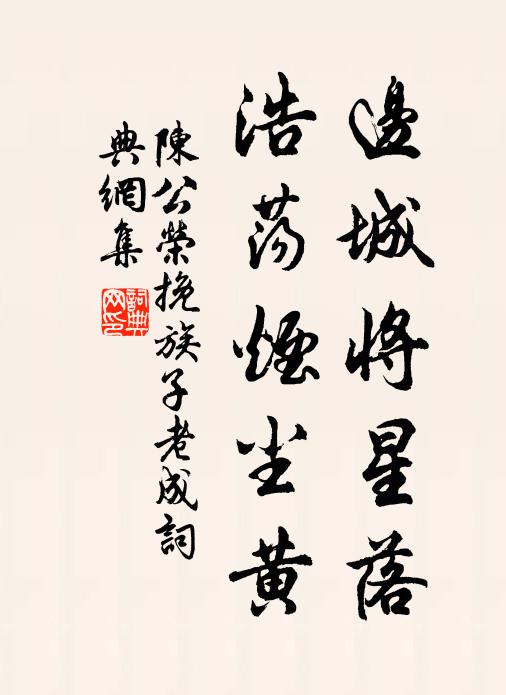 邊城將星落
浩蕩煙尘黄
陳公榮挽族子老成詞
典網集
詞典网印